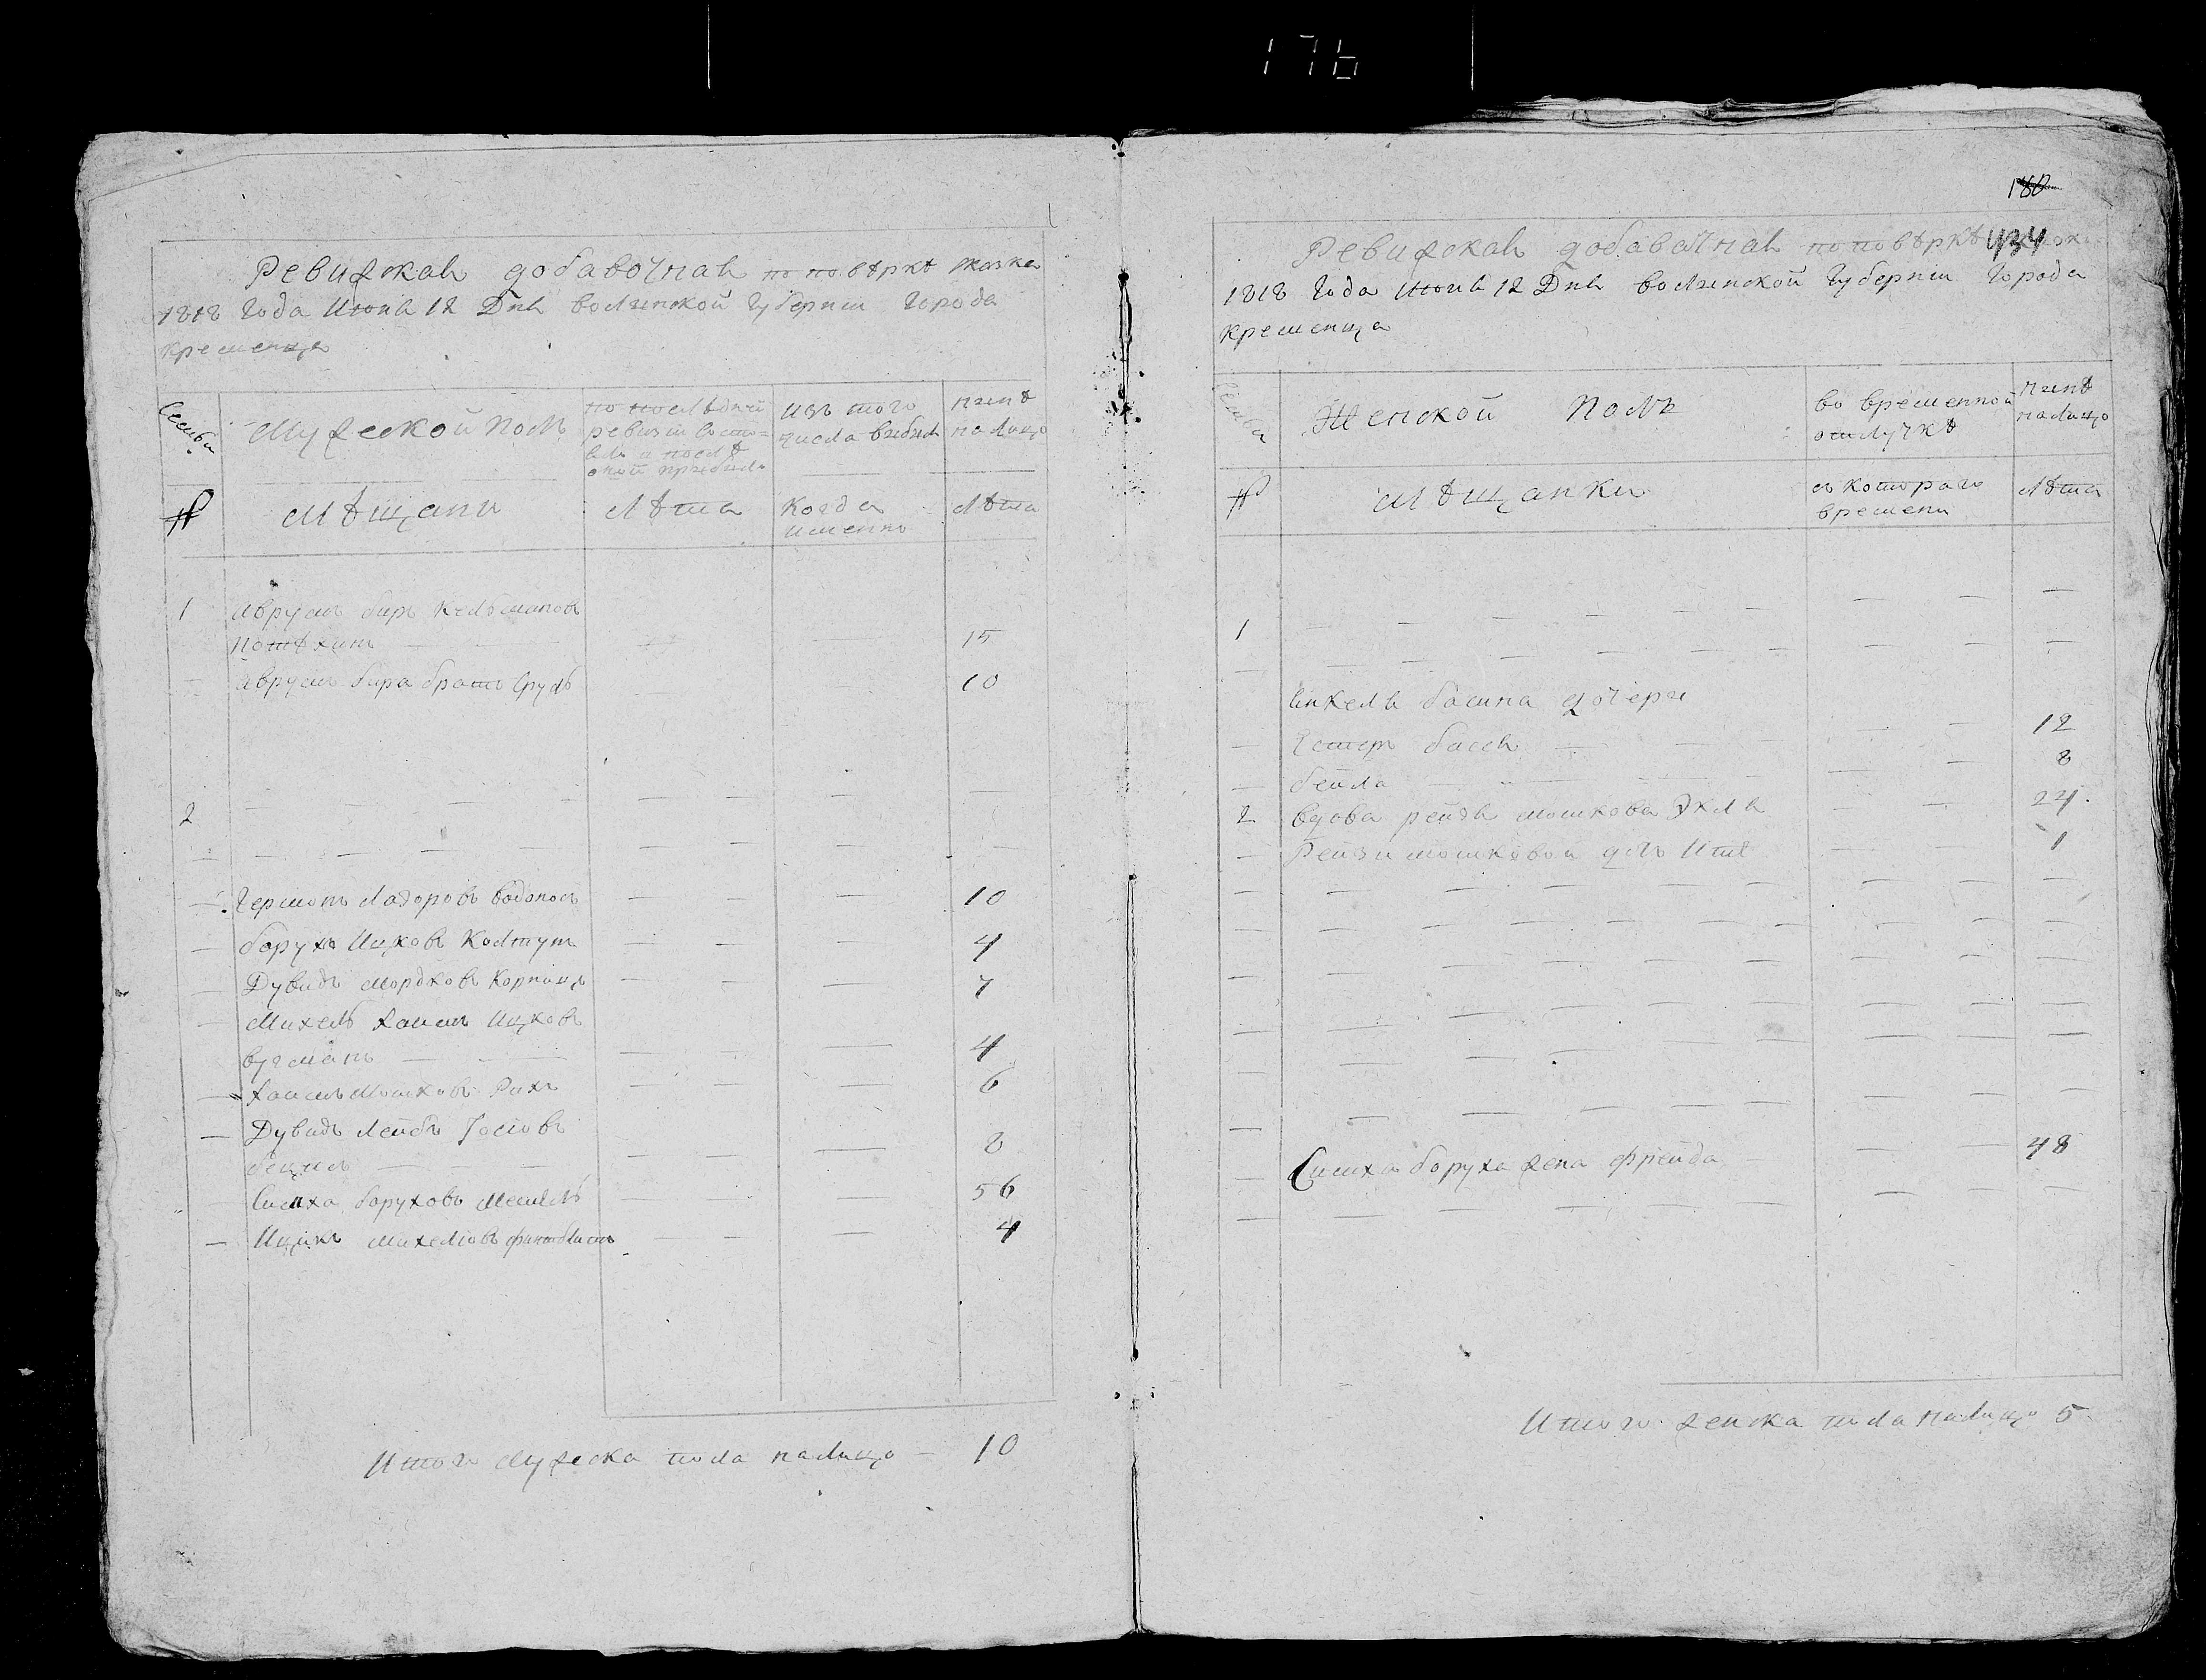 176
Ревижская добавочная по повѣркѣ сказка
1818 Года Июня 12 Дня волынской Губерніи Города
Кременца
Семьи
Мужеской полъ
по послѣдней
ревизіи состо=
яло и послѣ
оной прибыло
изъ того
числа выбыло
нынѣ
на лицо
№
Мѣщани
Лѣта
Когда
именно
Лѣта
1 Аврумъ Беръ Кельмановъ
15
Аврумъ Бера братъ Сруль 10
2
Гершонъ Лазоровъ водонос 10
Борухъ Ицковъ Колтунъ 4
Дувидъ Мордковъ Корницъ 7
Михель Хаимъ Ицковъ
вугманъ 4
Хаимъ Мошковъ Рихъ 6
Дувидъ Лейбъ Іосіовъ
8
Симха Боруховъ 56
Ицикъ Михеліовъ 4
Итого Мужеска пола налицо 10
180
434
Ревижская добавочная по повѣркѣ
1818 Года Июня 12 Дня волынской Губерніи Города
Кременца
Семьи
Женской полъ
во временной
отлучкѣ
нынѣ
налицо
№
Мѣщанки
съ котораго
времени
Лѣта
1
дочери
Естеръ Бася 12
бейла 8
2 вдова рейзя мошкова 24
Рейзи мошковой дочь 1
Симха Боруха жена фрейда 48
Итого женска пола налицо 5